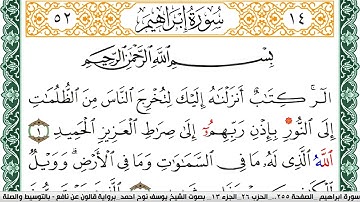 ١٤ سُورَةُ إِبْرَاهِيمَ ٥٢
بِسْمِ اللَّهِ الرَّحْمَٰنِ الرَّحِيمِ
الٓرۚ كِتَٰبٌ أَنزَلْنَٰهُ إِلَيْكَ لِتُخْرِجَ النَّاسَ مِنَ الظُّلُمَٰتِ
إِلَى النُّورِ بِإِذْنِ رَبِّهِمُۥٓ إِلَىٰ صِرَٰطِ الْعَزِيزِ الْحَمِيدِ ١
اللَّهُ الَّذِي لَهُۥ مَا فِي السَّمَٰوَٰتِ وَمَا فِي الْأَرْضِ وَوَيْلٌ
سورة ابراهيم .. الصفحة ٢٥٥ ... الحزب ٢٦ .. الجزء ١٣ .. بصوت الشيخ يوسف نوح احمد .. برواية قالون عن نافع - بالتوسيط والصلة